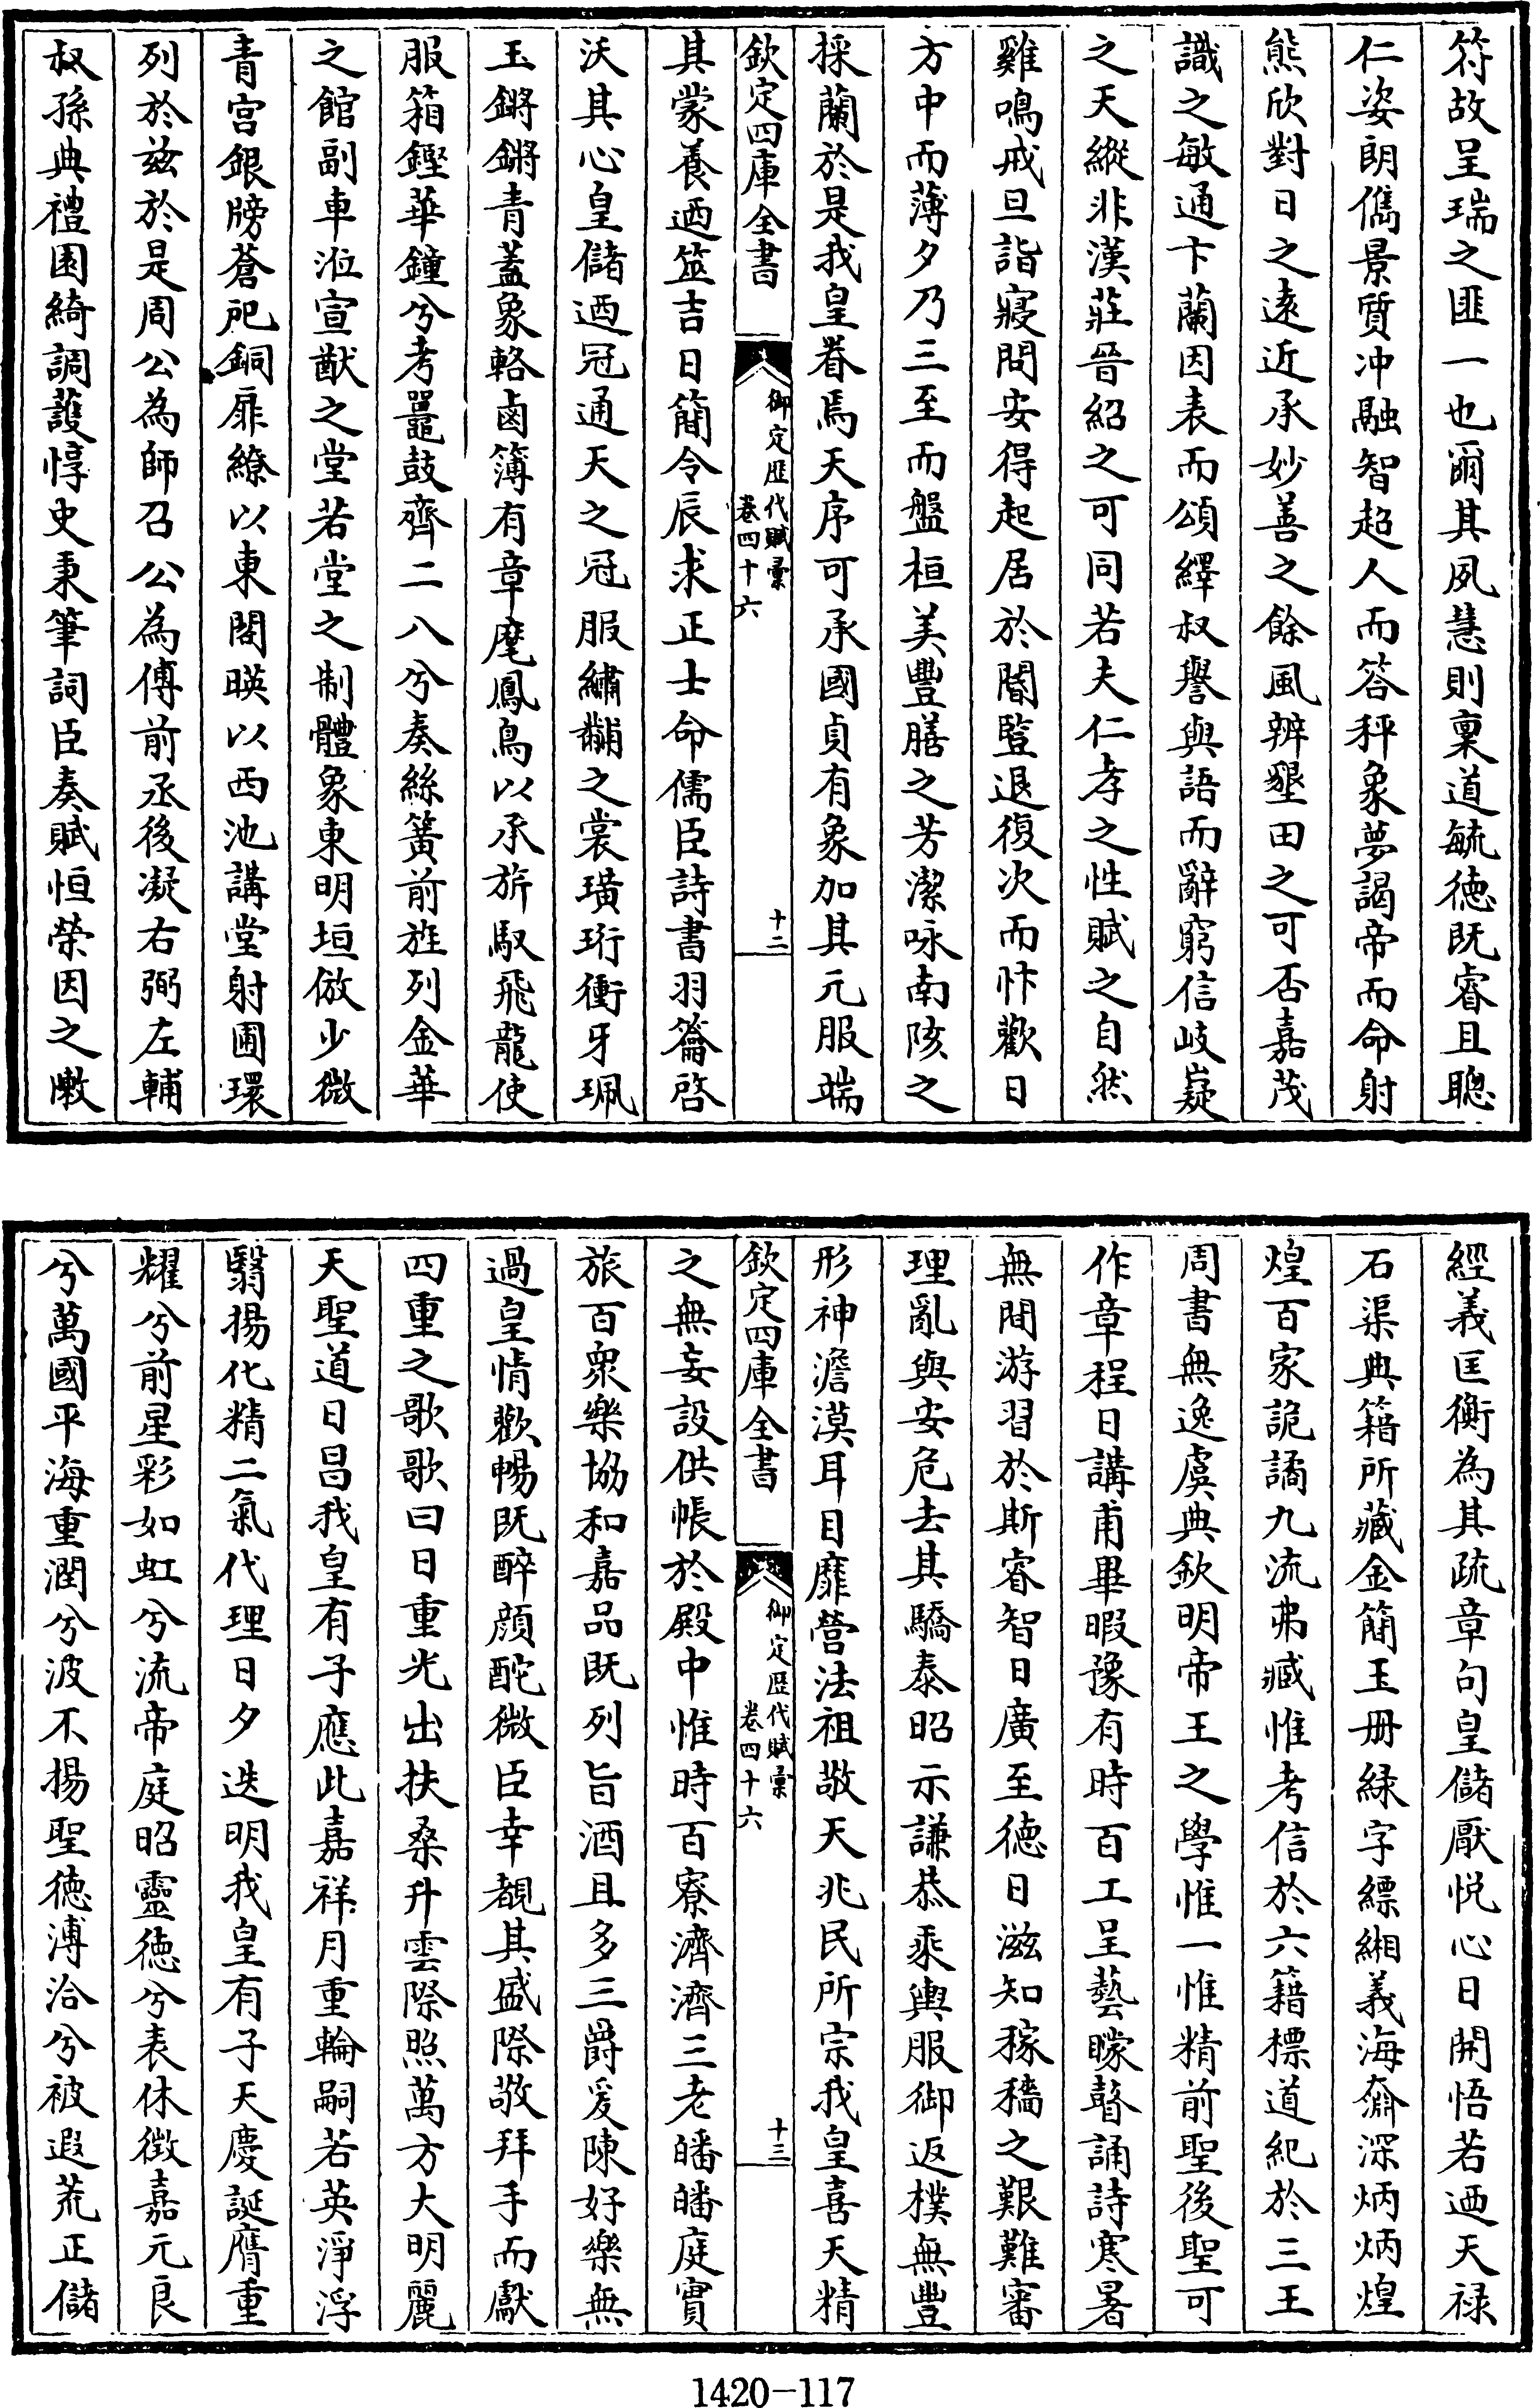 符故呈瑞之匪一也爾其夙慧則稟道毓徳既睿且聰
仁姿朗儁景質冲融智超人而答秤象夢謁帝而命射
熊欣對日之逺近承妙善之餘風辨墾田之可否嘉茂
識之敏通卞蘭因表而頌繹叔譽與語而辭窮信岐嶷
之天縱非漢莊晉紹之可同若夫仁孝之性賦之自然
雞鳴戒旦詣寢問安得起居於閽豎退復次而忭歡日
方中而薄夕乃三至而盤桓美豐膳之芳潔咏南陔之
採蘭於是我皇眷焉天序可承國貞有象加其元服端
欽定四庫全書
御定歴代賦彚
卷四十六
十二
其蒙養迺筮吉日簡令辰求正士命儒臣詩書羽籥啓
沃其心皇儲迺冠通天之冠服繡黼之裳璜珩衝牙珮
玉鏘鏘青蓋象輅鹵簿有章麾鳳鳥以承旂馭飛龍使
服箱鏗華鐘兮考鼉鼓齊二八兮奏絲簧前旌列金華
之館副車涖宣猷之堂若堂之制體象東明垣倣少微
青宫銀牓蒼祀銅扉繚以東閣暎以西池講堂射圃環
列於兹於是周公為師召公為傅前丞後凝右弼左輔
叔孫典禮園綺調護惇史秉筆詞臣奏賦恒榮因之敷
經義匡衡為其疏章句皇儲厭悦心日開悟若迺天禄
石渠典籍所藏金簡玉册緑字縹緗義海齋深炳炳煌
煌百家詭譎九流弗臧惟考信於六籍標道紀於三王
周書無逸虞典欽明帝王之學惟一惟精前聖後聖可
作章程日講甫畢暇豫有時百工呈藝矇瞽誦詩寒暑
無間游習於斯睿智日廣至徳日滋知稼穡之艱難審
理亂與安危去其驕泰昭示謙恭乘輿服御返樸無豐
形神澹漠耳目靡營法祖敬天兆民所宗我皇喜天精
欽定四庫全書
御定歴代賦彚
卷四十六
十三
之無妄設供帳於殿中惟時百寮濟濟三老皤皤庭實
旅百衆樂協和嘉品既列旨酒且多三爵爰陳好樂無
過皇情歡暢既醉顔酡微臣幸覩其盛際敬拜手而獻
四重之歌歌曰日重光出扶桑升雲際照萬方大明麗
天聖道日昌我皇有子應此嘉祥月重輪嗣若英淨浮
翳揚化精二氣代理日夕迭明我皇有子天慶誕膺重
耀兮前星彩如虹兮流帝庭昭靈徳兮表休徴嘉元良
兮萬國平海重潤兮波不揚聖徳溥洽兮被遐荒正儲
1420-117